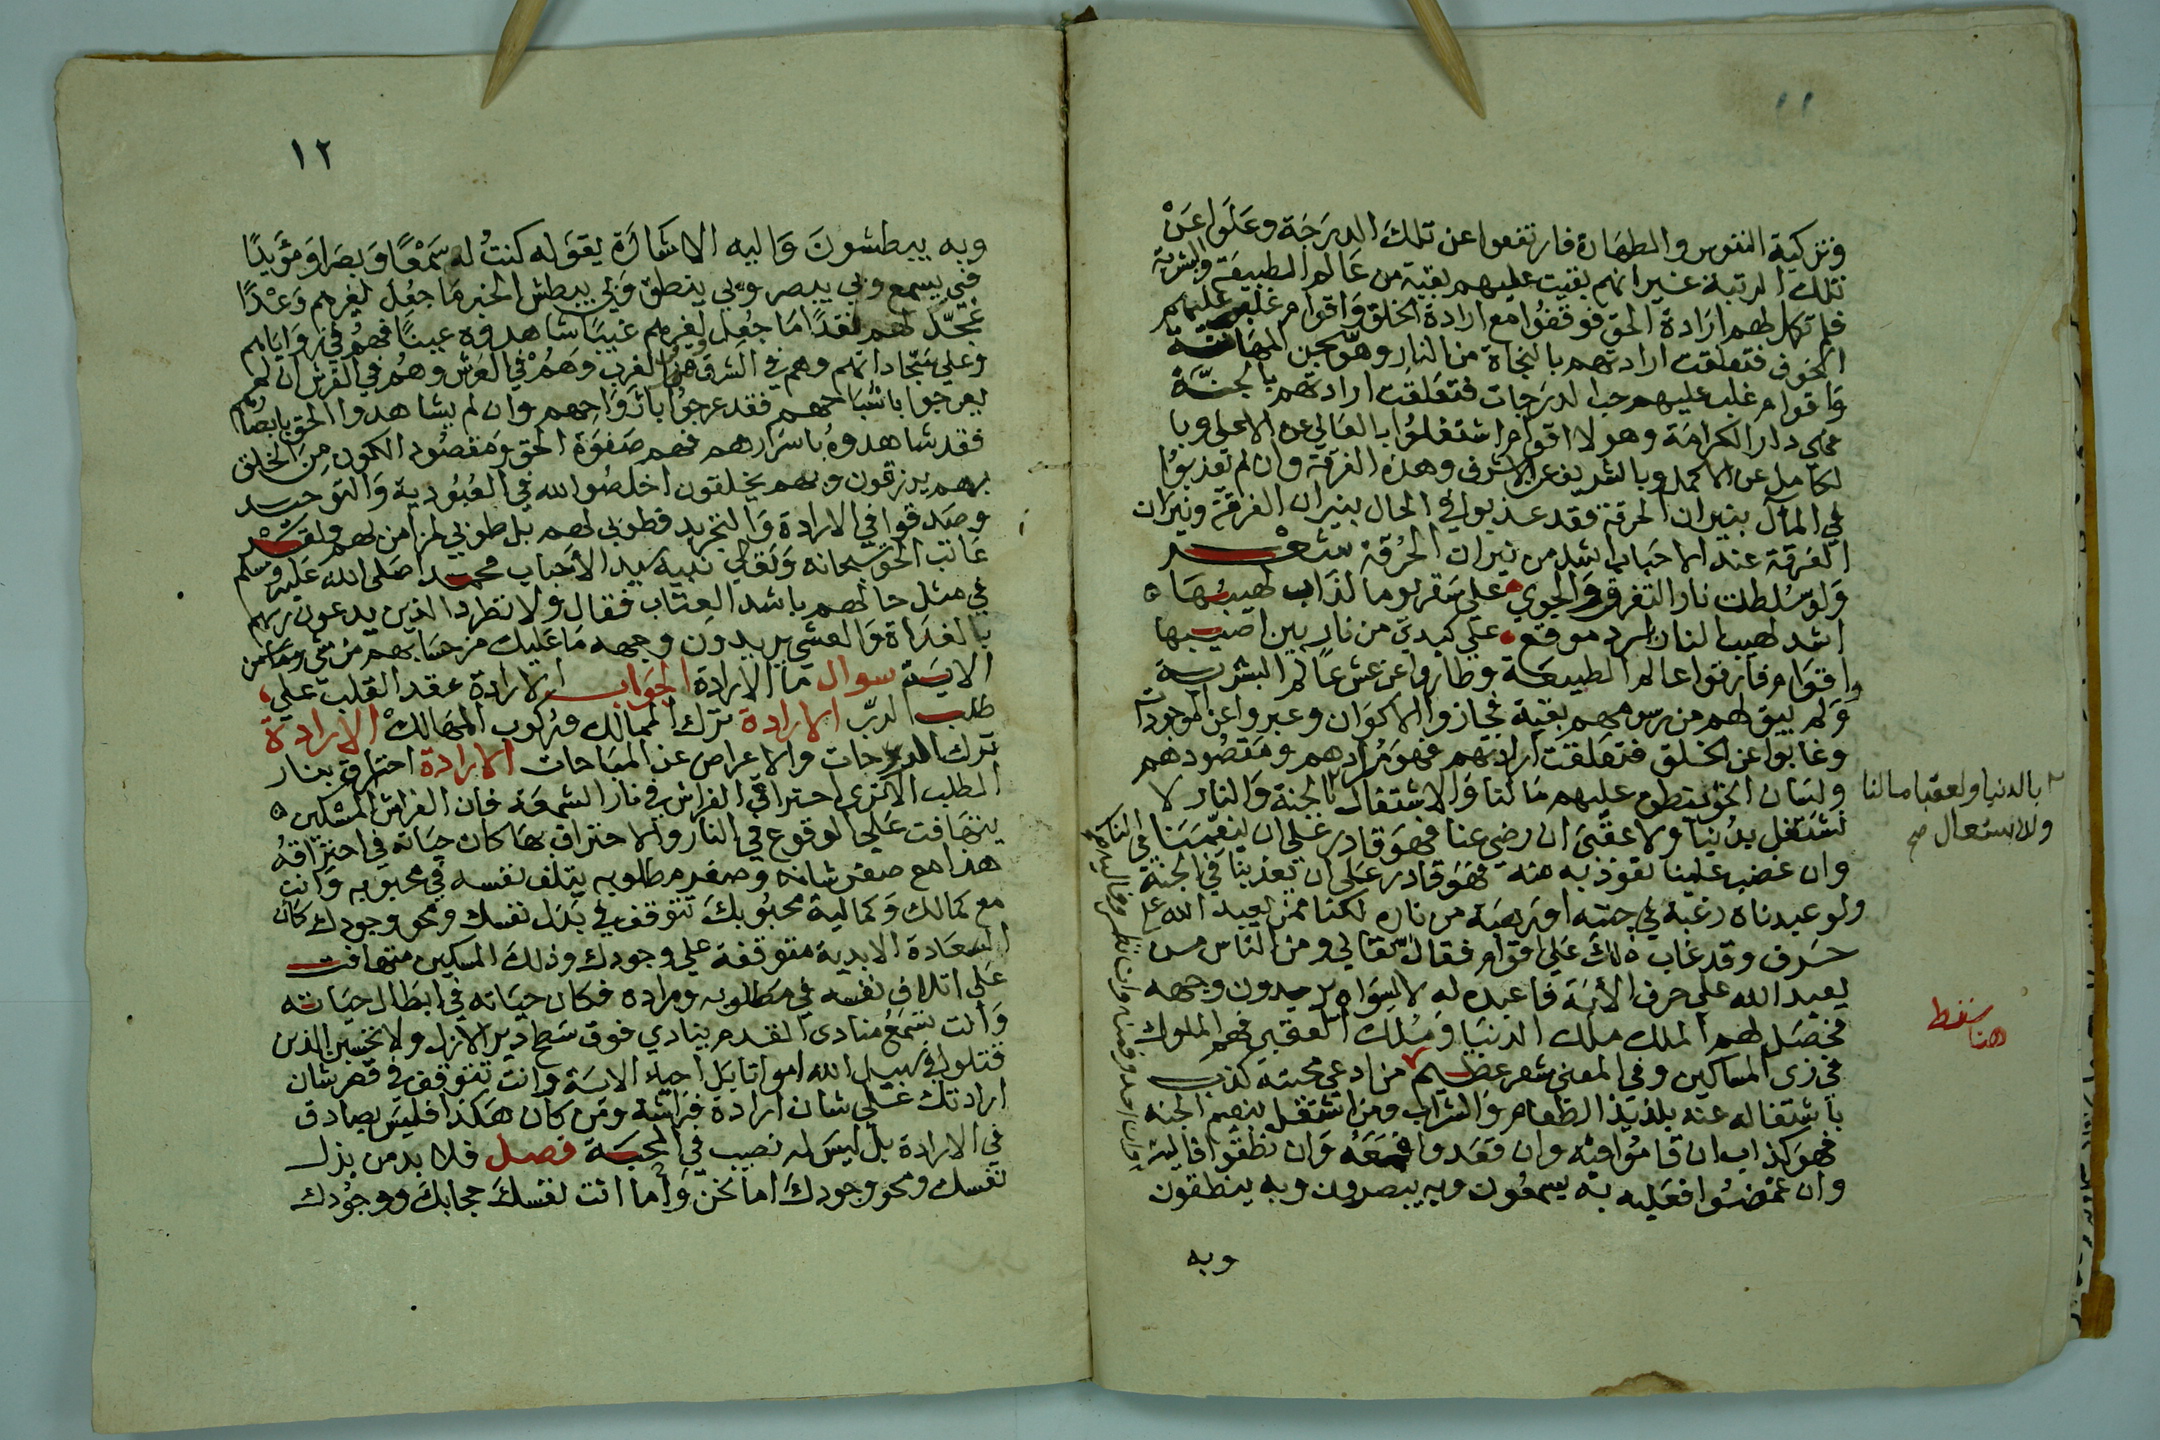 ١١
وتزكية النفوس والطهارة فارتفعوا عن تلك الدرجة وعلوا عن
تلك الرتبة غير انهم بقيت عليهم بقية من عالم الطبيعة والبشرية
فلم تكمل لهم ارادة الحق فوقفوا مع ارادة الخلق واقوام غلب عليهم
الخوف فتعلقت ارادتهم بالنجاة من النار وهو سجن المهانة
واقوام غلب عليهم حب الدرجات فتعلقت ارادتهم بالجنة
فهي دار الكرامة وهولا اقوام اشتغلوا بالعالي عن الاعلى وبا
لكامل عن الاكمل وبالشريف عن الاشرف وهذه الفرقة وان لم يعذبوا
في المآل بنيران الحرقة فقد عذبوا في الحال بنيران الفرقة ونيران
الفرقة عند الاحباب اشد من نيران الحرقة شعر
ولو سلطت نار التفرق والجوي على سقر يوما لذاب لهيبها
اشد لهيب النار ابرد موقع على كبدي من نار بين اصيبها
واقوام فارقوا عالم الطبيعة وطاروا عن عش عالم البشرية
ولم يبق لهم من رسومهم بقية فجازوا الاكوان وعبروا عن الموجودات
وغابوا عن الخلق فتعلقت ارادتهم فهو مرادهم ومقصودهم
ولسان الحق ينطق عليهم ما لنا والاشتغال بالجنة والنار لا
نشتغل بدنيا ولا عقبى ان رضي عنا فهو قادر على ان ينعمنا في النار
وان غضب علينا نعوذ به منه فهو قادر على ان يعذبنا في الجنة
ولو عبدناه رغبة في جنته او رهبة من ناره لكنا ممن يعبد الله على
حرف وقد عاب ذلك على اقوام فقال تعالى ومن الناس من
يعبد الله على حرف الآية فاعبده له لا لسواه يريدون وجهه
فحصل لهم الملك ملك الدنيا وملك العقبى فهم الملوك
في زي المساكين وفي المعنى شعر عظيم من ادعى محبته كذب
باشتغاله عنه بلذيذ الطعام والشراب ومن اشتغل بنعيم الجنة
فهو كذاب ان قاموا فبه وان قعدوا فمعه وان نطقوا فاليه
وان غمضوا فعليه به يسمعون وبه يبصرون وبه ينطقون
وبه
بالدنيا ولعقبا ما لنا
ولا اشتغال صح
هنا سقط
١٢
وبه يبطشون واليه الاشارة بقوله كنت له سمعا وبصرا ومؤيدا
فبي يسمع وبي يبصر وبي ينطق وبي يبطش الخبر ما جعل لغيرهم وعدا
عجل لهم نقدا ما جعل لغيرهم غيبا شاهدوه عينا فهم في زواياهم
وعلى سجاداتهم وهم في الشرق وهم في الغرب وهم في العرش وهم في الفرش ان لم
يعرجوا باشباحهم فقد عرجوا بارواحهم وان لم يشاهدوا الحق بابصارهم
فقد شاهدوه باسرارهم فهم صفوة الحق ومقصود الكون من الخلق
بهم يرزقون وبهم يخلقون اخلصوا لله في العبودية والتوحيد
وصدقوا في الارادة والتجريد فطوبى لهم بل طوبى لمن امن لهم ولقد
عاتب الحق سبحانه وتعالى نبيه سيد الأحباب محمدا صلى الله عليه وسلم
في مثل حالهم باشد العتاب فقال ولا تطرد الذين يدعون ربهم
بالغداة والعشي يريدون وجهه ما عليك من حسابهم من شي وما من
الاية سوال ما الارادة الجواب الارادة عقد القلب على
طلب الرب الارادة ترك الممالك وركوب المهالك الارادة
ترك الدرجات والاعراض عن المباحات الارادة احتراق بنار
الطلب الا ترى احتراق الفراش في نار الشمعة فان الفراش المسكين
يتهافت على الوقوع في النار والاحتراق بها كان حياته في احتراقه
هذا مع صغر شانه وصغر مطلوبه يتلف نفسه في محبوبه وانت
مع كمالك وكمالية محبوبك تتوقف في بذل نفسك ومحو وجودك كان
السعادة الابدية متوقفة على وجودك وذلك المسكين متهافت
على اتلاف نفسه في مطلوبه ومراده فكان حياته في ابطال حياته
وانت تسمع منادى القدم ينادي فوق سطح دير الازل ولا تحسبن الذين
قتلوا في سبيل الله امواتا بل احياء الاية وانت تتوقف في قهر شان
ارادتك على شان ارادة فراشة ومن كان هكذا فليس بصادق
في الارادة بل ليس له نصيب في المحبة فصل فلا بد من بذل
نفسك ومحو وجودك اما نحن واما انت نفسك حجابك ووجودك